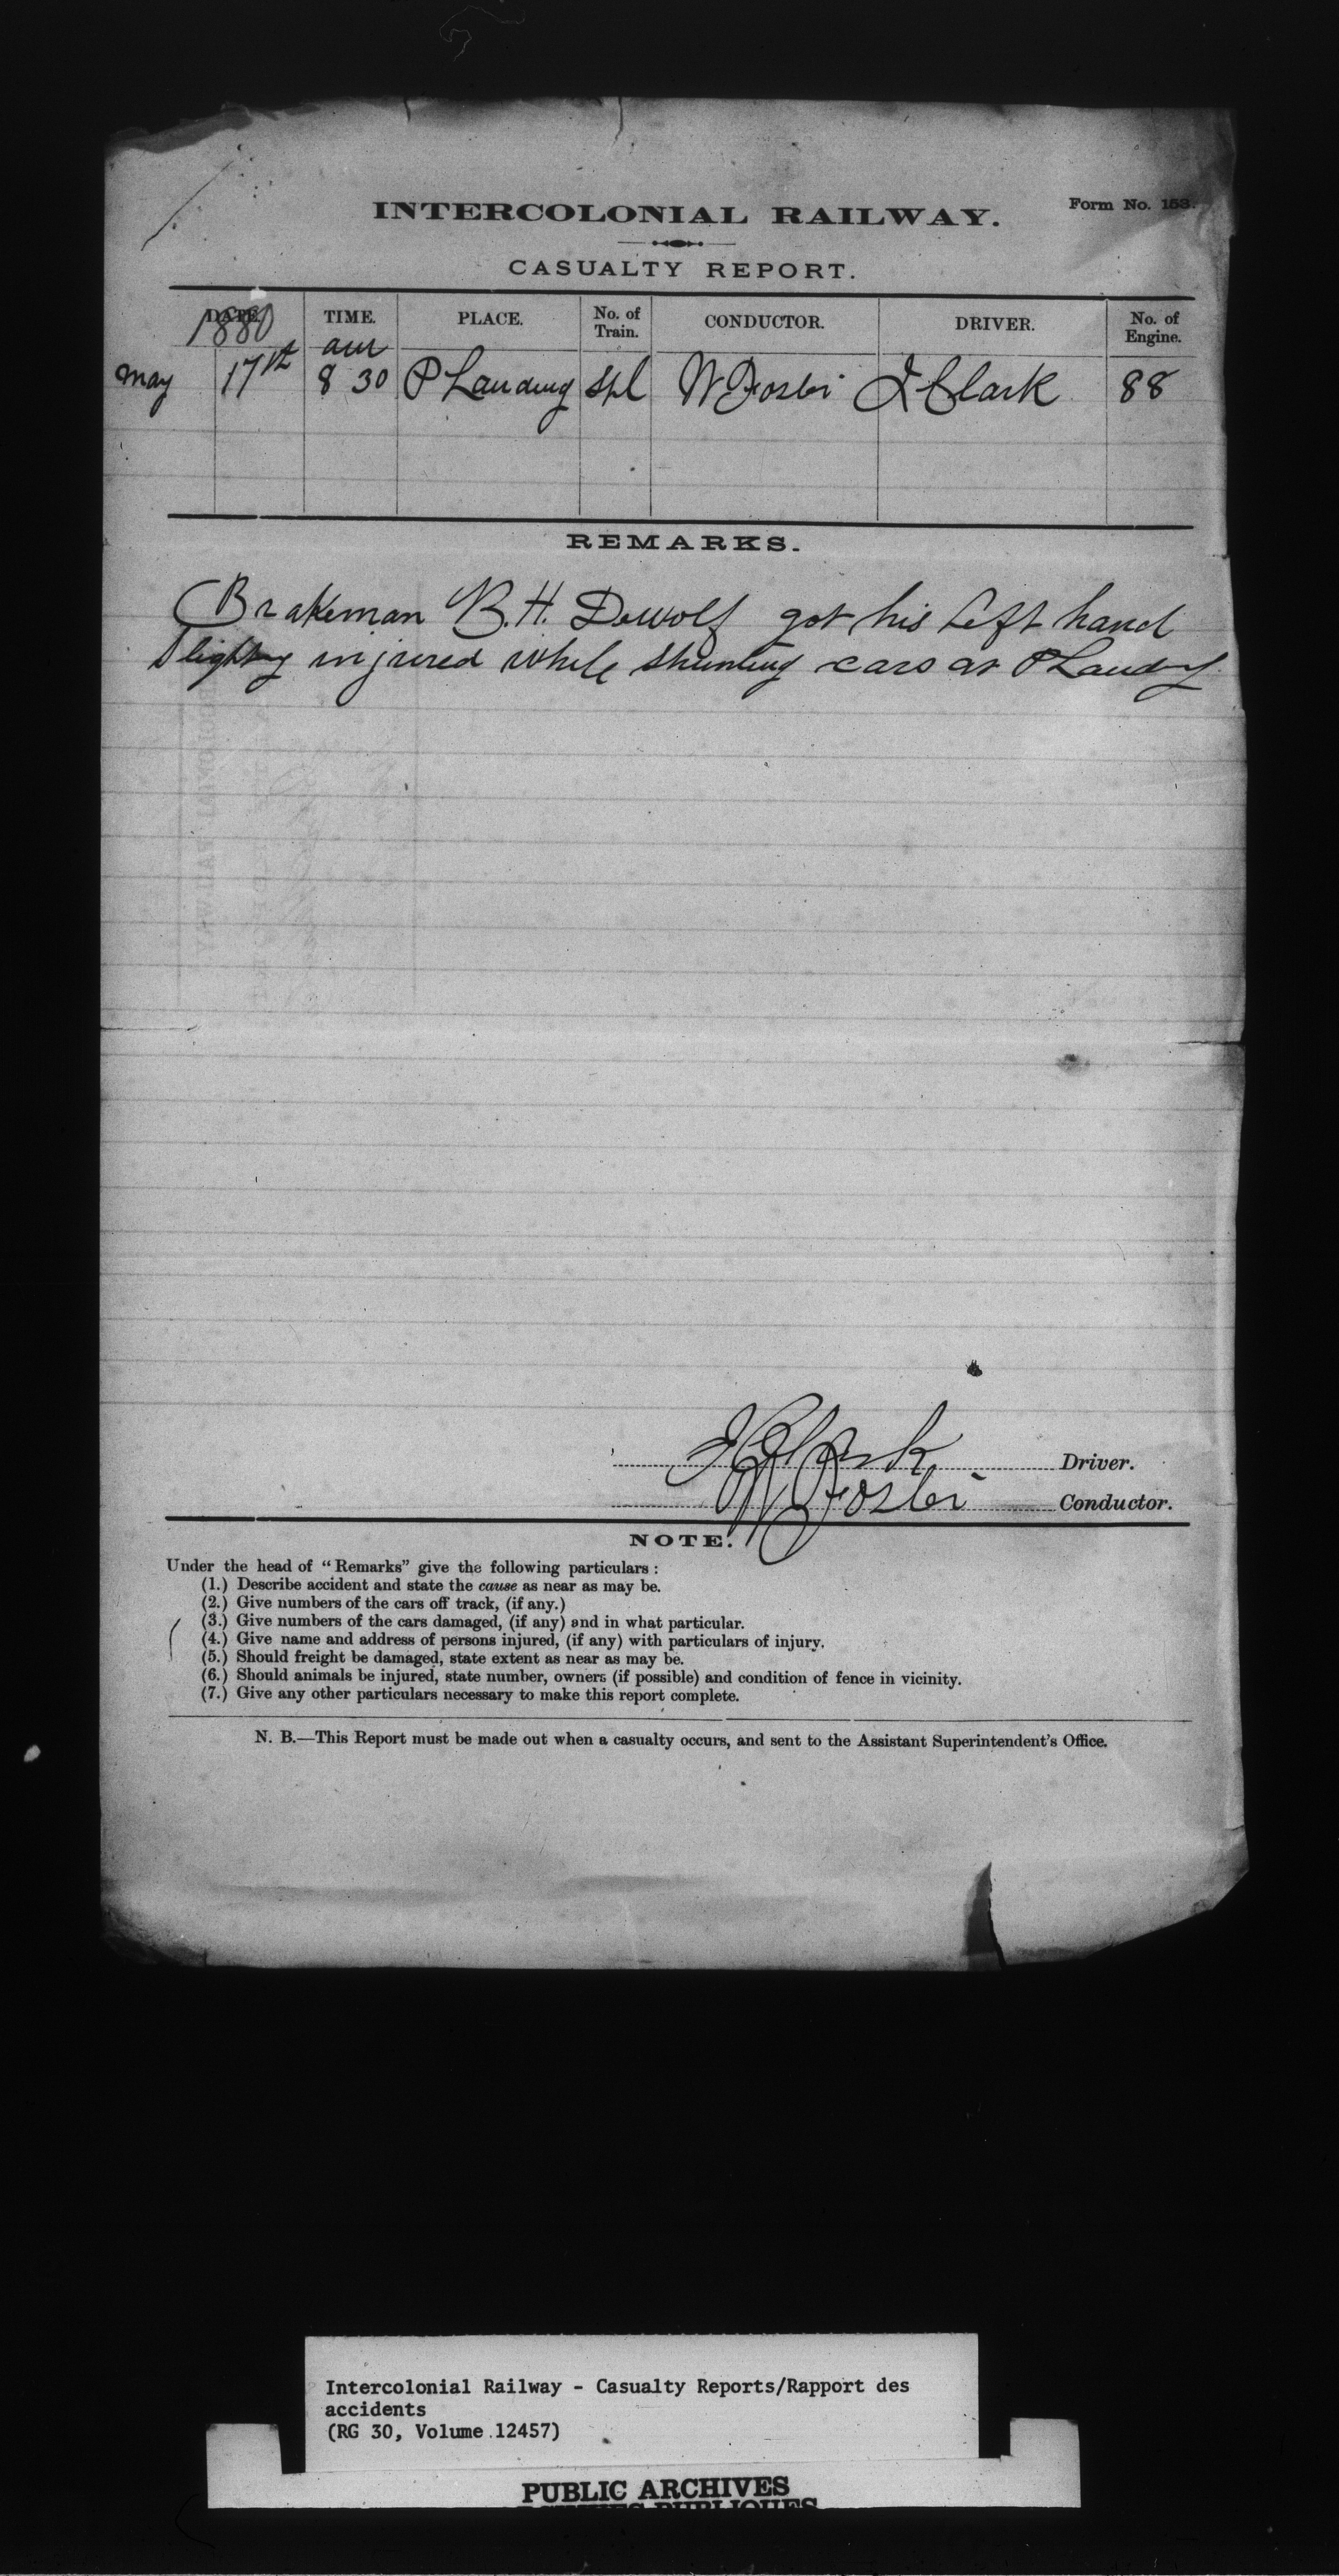 Form No. 153.
INTERCOLONIAL RAILWAY.
CASUALTY REPORT.
DATE. TIME. PLACE. No. of Train. CONDUCTOR. DRIVER. No. of Engine.
1880 am
May 17th 8 30 P Landing Spl W Foster J Clark 88
REMARKS.
Brakeman B. H. Dewolf got his left hand
slightly injured while shunting cars at P Landing
J Clark Driver.
W Foster Conductor.
NOTE.
Under the head of "Remarks" give the following particulars :
(1.) Describe accident and state the cause as near as may be.
(2.) Give numbers of the cars off track, (if any.)
(3.) Give numbers of the cars damaged, (if any) and in what particular.
(4.) Give name and address of persons injured, (if any) with particulars of injury.
(5.) Should freight be damaged, state extent as near as may be.
(6.) Should animals be injured, state number, owners (if possible) and condition of fence in vicinity.
(7.) Give any other particulars necessary to make this report complete.
N. B.—This Report must be made out when a casualty occurs, and sent to the Assistant Superintendent's Office.
Intercolonial Railway - Casualty Reports/Rapport des
accidents
(RG 30, Volume 12457)
PUBLIC ARCHIVES